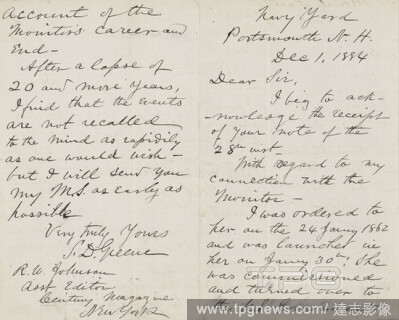 Navy Yard
Portsmouth N. H.
Dec 1, 1884
Dear Sir,
I beg to ack-
nowledge the receipt
of your note of the
28th inst.
With regard to my
connection with the
Monitor —
I was ordered to
her on the 24 Jany 1862
and was launched in
her on Jany 30th, She
was commissioned
and turned over to
Account of the
Monitors career and
End —
After a lapse of
20 and more years,
I find that the events
are not recalled
to the mind as rapidily
as one would wish —
but I will send you
my M.S. as early as
possible
Very truly Yours
S. D. Greene
R. W. Johnson
Asst Editor
Century Magazine
New York
www.tpgnews.com • 達志影像